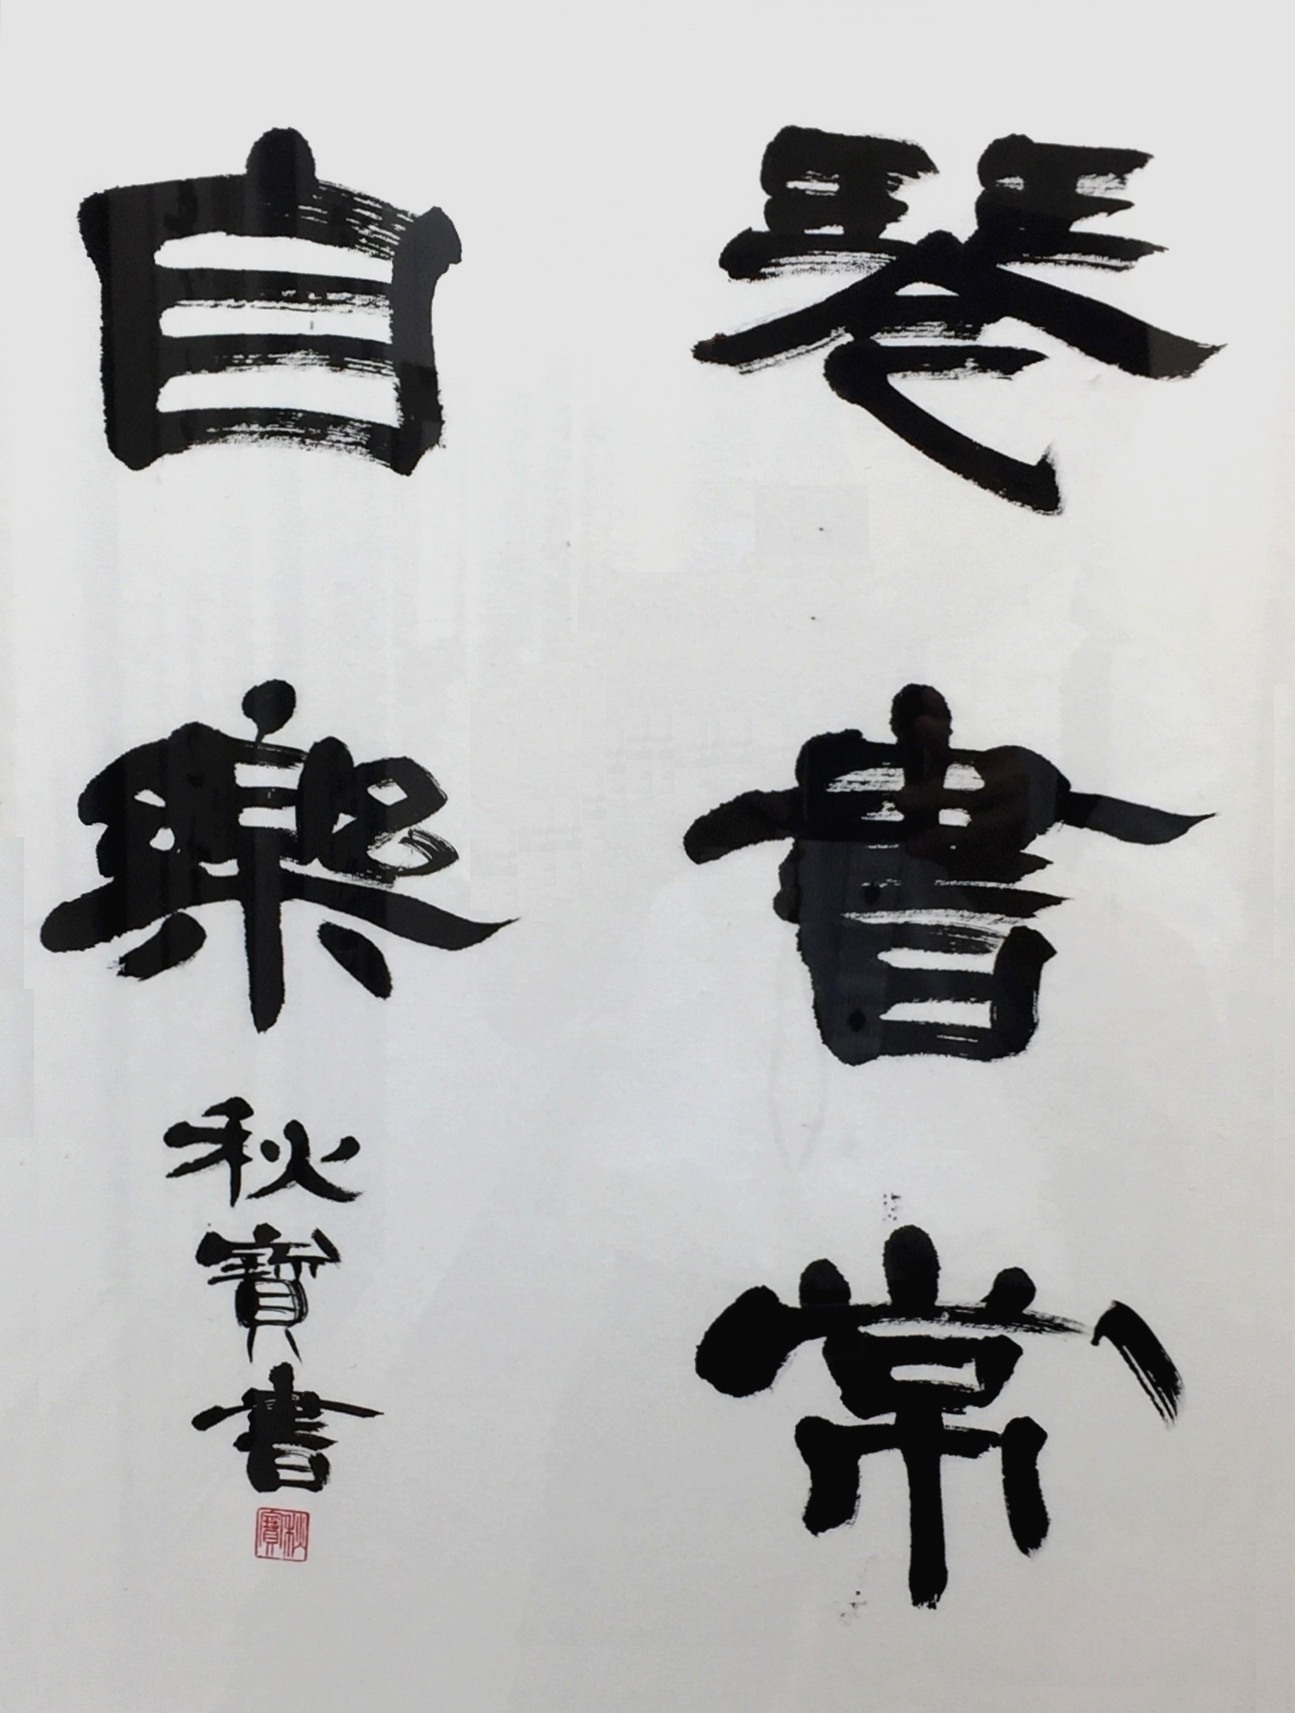 琴書常
自樂
秋寶書
秋寶